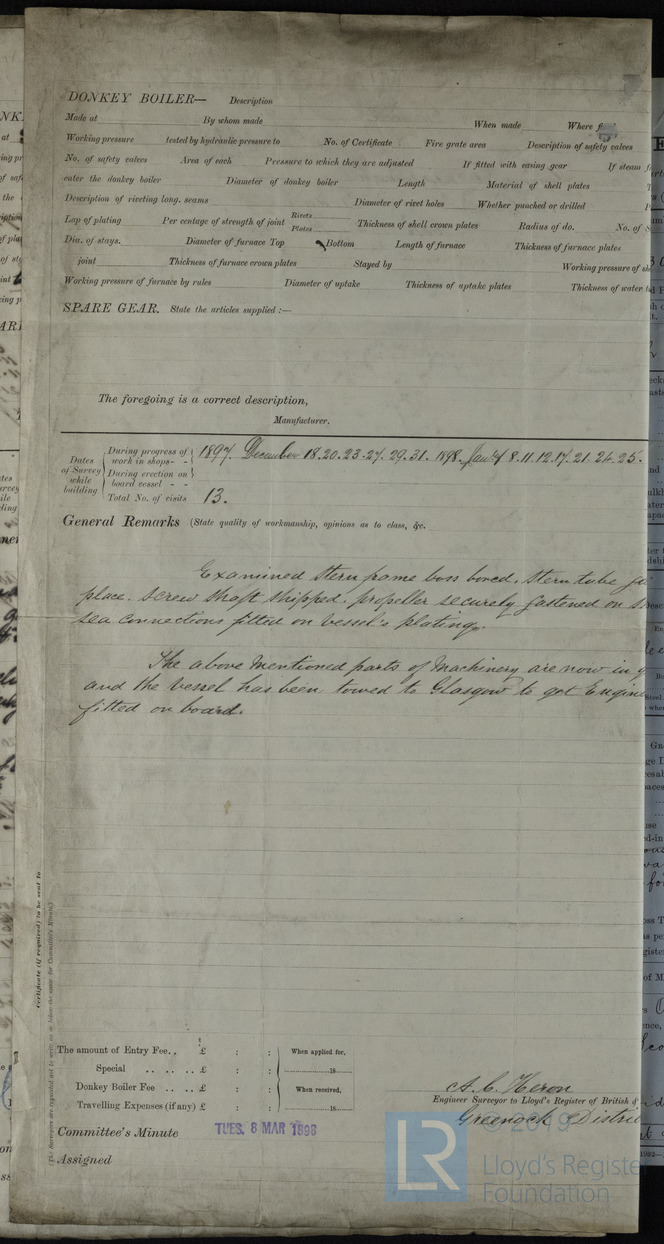 DONKEY BOILER— Description
Made at By whom made When made Where
Working pressure tested by hydraulic pressure to No. of Certificate Fire grate area Description of safety valves
No. of safety valves Area of each Pressure to which they are adjusted If fitted with easing gear If steam
enter the donkey boiler Diameter of donkey boiler Length Material of shell plates
Description of riveting long. seams Diameter of rivet holes Whether punched or drilled
Lap of plating Per centage of strength of joint Rivets Plates Thickness of shell crown plates Radius of do. No. of
Dia. of stays. Diameter of furnace Top Bottom Length of furnace Thickness of furnace plates
joint Thickness of furnace crown plates Stayed by Working pressure of
Working pressure of furnace by rules Diameter of uptake Thickness of uptake plates Thickness of water
SPARE GEAR. State the articles supplied :—
The foregoing is a correct description,
Manufacturer.
Dates of Survey while building
During progress of work in shops - - 1897. December 18.20.23.27.29.31. 1898. Jany 4 8.11.12.17.21.24.25.
During erection on board vessel - -
Total No. of visits 13.
General Remarks (State quality of workmanship, opinions as to class, &c.
Examined stern frame boss bored, stern tube
place. Screw shaft shipped, propeller securely fastened on
sea connections fitted on vessel's plating.
The above mentioned parts of Machinery are now in
and the vessel has been towed to Glasgow to get Engine
fitted on board.
Certificate (if required) to be sent to
The Surveyors are requested not to write on or below the space for Committee's Minute.
The amount of Entry Fee.. £ : : When applied for,
Special .. .. .. £ : : 18
Donkey Boiler Fee .. .. £ : : When received,
Travelling Expenses (if any) £ : : 18
A. C. Heron
Engineer Surveyor to Lloyd's Register of British &
Greenock
Committee's Minute TUES. 8 MAR 1898
Assigned
© 2019
LR Lloyd's Register
Foundation